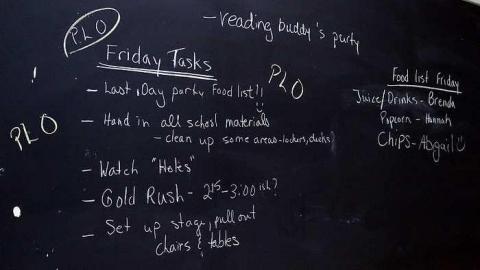 P.L.O
- reading buddy's party
Friday Tasks
- Last Day party Food list!!
PLO
- Hand in all school materials
- clean up some areas-lockers, desks?
PLO
- Watch "Holes"
- Gold Rush - 2:15-3:00 ish?
- Set up stage, pull out
chairs & tables
Food list Friday
Juice/Drinks - Brenda
Popcorn - Hannah
Chips - Abgail